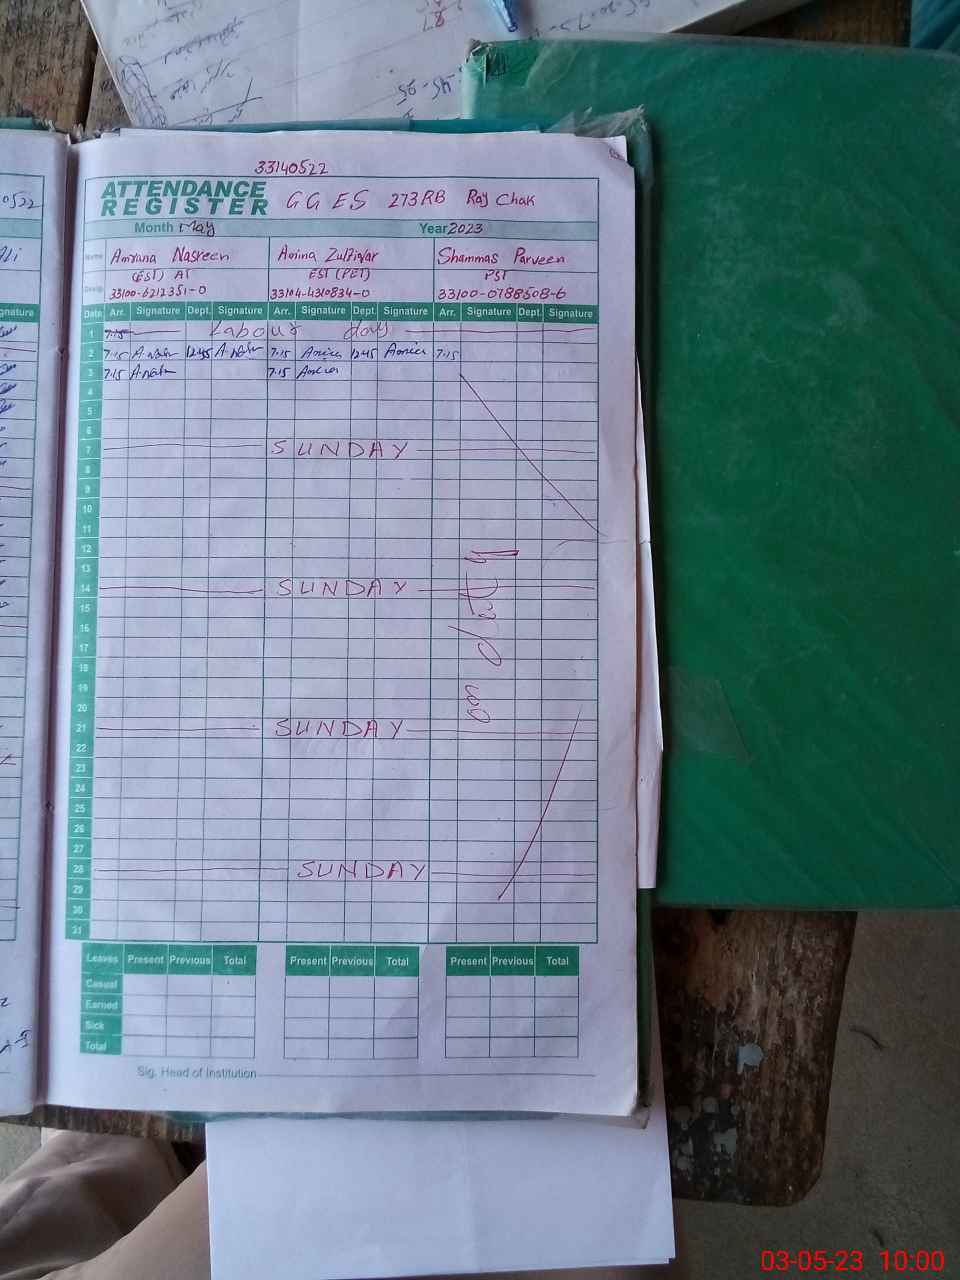 33140522
ATTENDANCE REGISTER GGES 273RB Raj Chak
Month May Year 2023
Name Amrana Nasreen Amina Zulfiqar Shammas Parveen
Desig. (EST) AT EST (PET) PST
33100-6212351-0 33104-4310834-0 33100-0788508-6
Date Arr. Signature Dept. Signature Arr. Signature Dept. Signature Arr. Signature Dept. Signature
1 7:15 Labour day
2 7:15 12:45 7:15 12:45 7:15
3 7:15 7:15
4
5
6
7 SUNDAY
8
9
10
11
12
13
14 SUNDAY
15
16
17
18
19
20
21 SUNDAY
22
23
24
25
26
27
28 SUNDAY
29
30
31
on duty
Leaves Present Previous Total Present Previous Total Present Previous Total
Casual
Earned
Sick
Total
Sig. Head of Institution
03-05-23 10:00